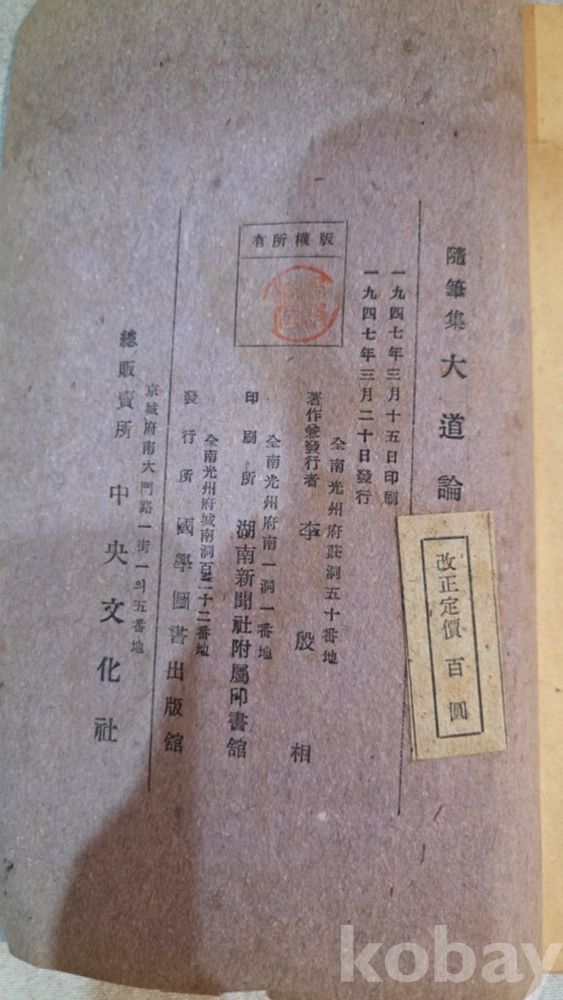 隨筆集 大道論
改正定價 百圓
一九四七年三月十五日印刷
一九四七年三月二十日發行
版權所有
全南光州府莊洞五十番地
著作兼發行者 李殷相
全南光州府南一洞一番地
印刷所 湖南新聞社附屬印書館
全南光州府城南洞百二十二番地
發行所 國學圖書出版館
京城府南大門路一街一의五番地
總販賣所 中央文化社
kobay